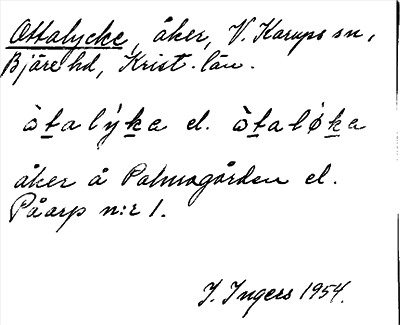 Ottalycke, åker, V. Karups sn,
Bjäre hd, Krist. län.
òtalýka el. òtaløka
åker å Palmagården el.
Påarp n:r 1.
I. Ingers 1954.